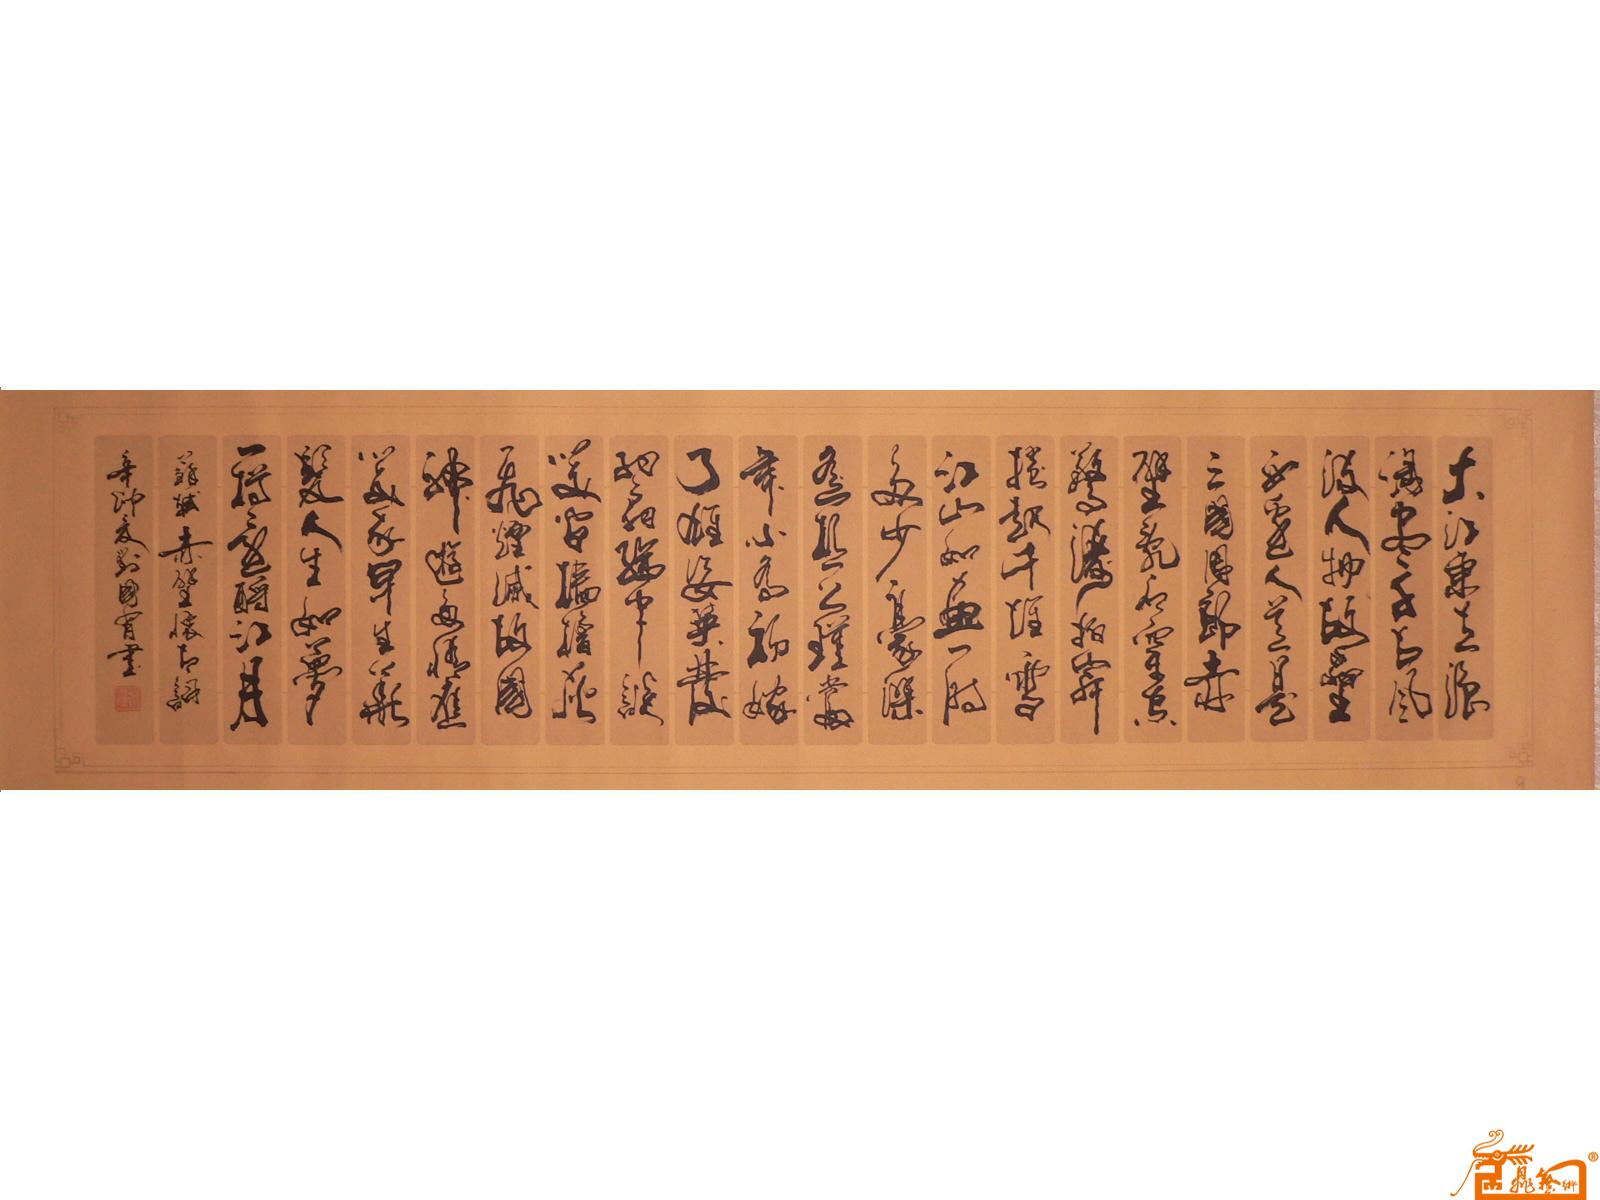 大江東去浪
淘盡千古風
流人物故壘
西邊人道是
三國周郎赤
壁亂石穿空
驚濤拍岸
捲起千堆雪
江山如畫一時
多少豪傑
遙想公瑾當
年小喬初嫁
了雄姿英發
羽扇綸巾談
笑間檣櫓灰
飛煙滅故國
神遊多情應
笑我早生華
髮人生如夢
一樽還酹江月
蘇軾赤壁懷古詞
辛卯夏劉國書